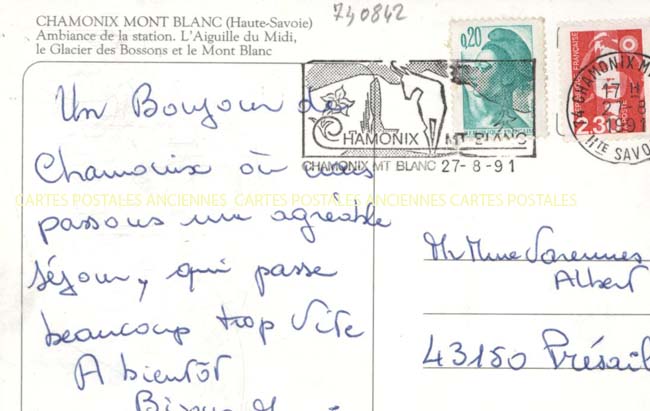 740842
CHAMONIX MONT BLANC (Haute-Savoie)
Ambiance de la station. L'Aiguille du Midi,
le Glacier des Bossons et le Mont Blanc
0,20
2,3
CHAMONIX MT BLANC
CHAMONIX MT BLANC 27-8-91
74 CHAMONIX-M
17 H
27-8
1991
HTE SAVO
Un Bonjour de
Chamonix où nous
passons un agréable
séjour, qui passe
beaucoup trop vite
A bientôt
CARTES POSTALES ANCIENNES CARTES POSTALES ANCIENNES CARTES POSTALES
Mr Mme Varennes
Albert
43150 Présail